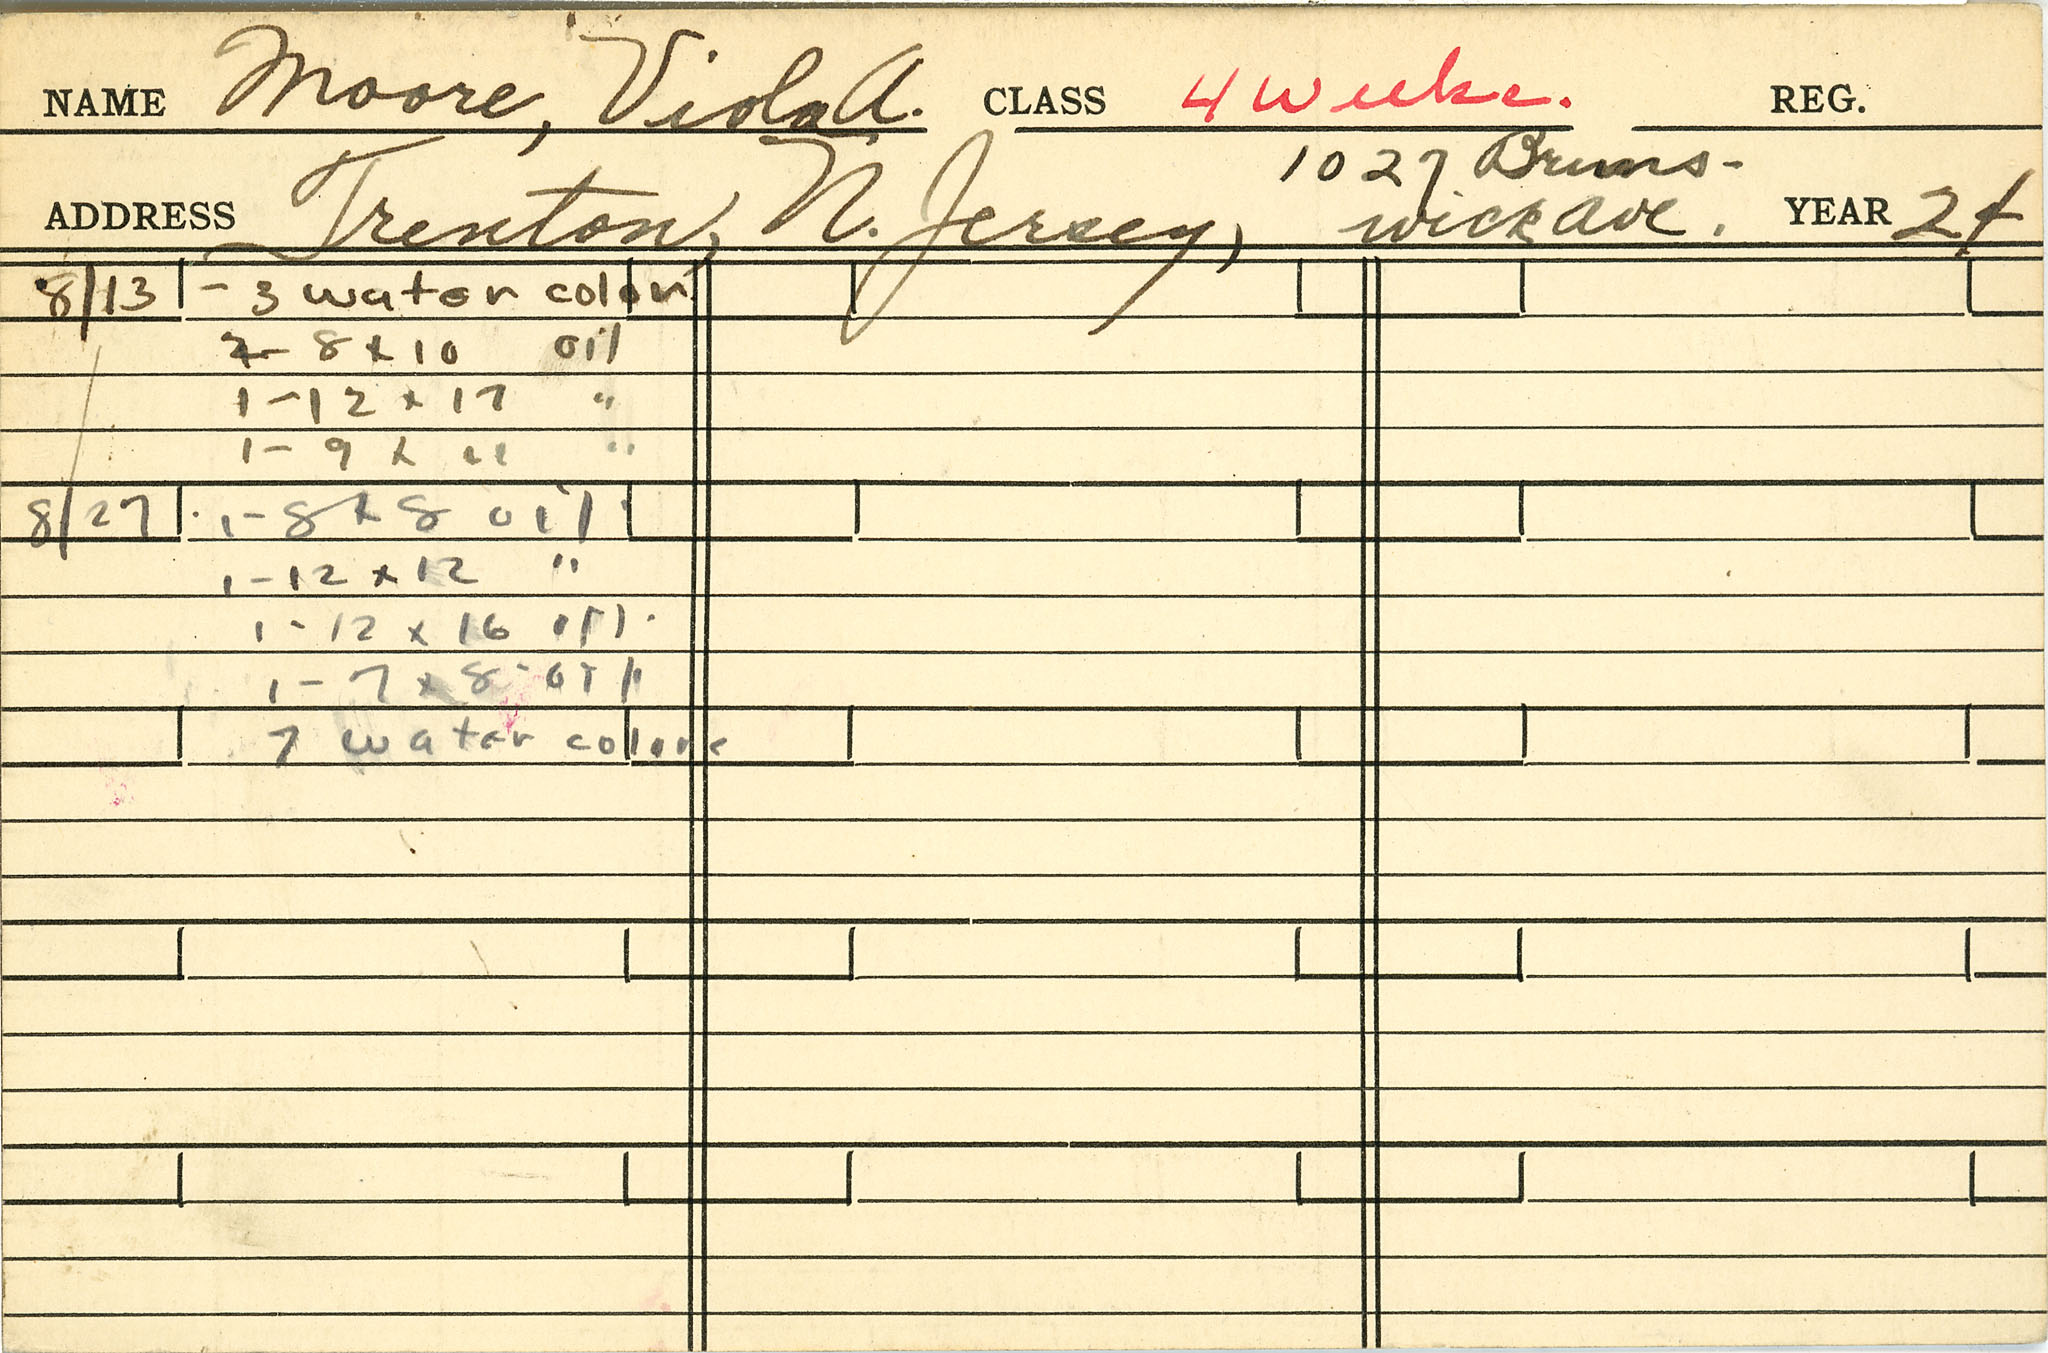 NAME Moore, Viola A. CLASS 4 Weeks. REG.
ADDRESS Trenton, N. Jersey, 1027 Bruns-
wick Ave. YEAR 24
8/13 - 3 water color
2- 8 x 10 oil
1-12 x 17 "
1- 9 x 11 "
8/27 1-8 x 8 oil
1-12 x 12 "
1-12 x 16 oil.
1-7 x 8 oil
7 water colors